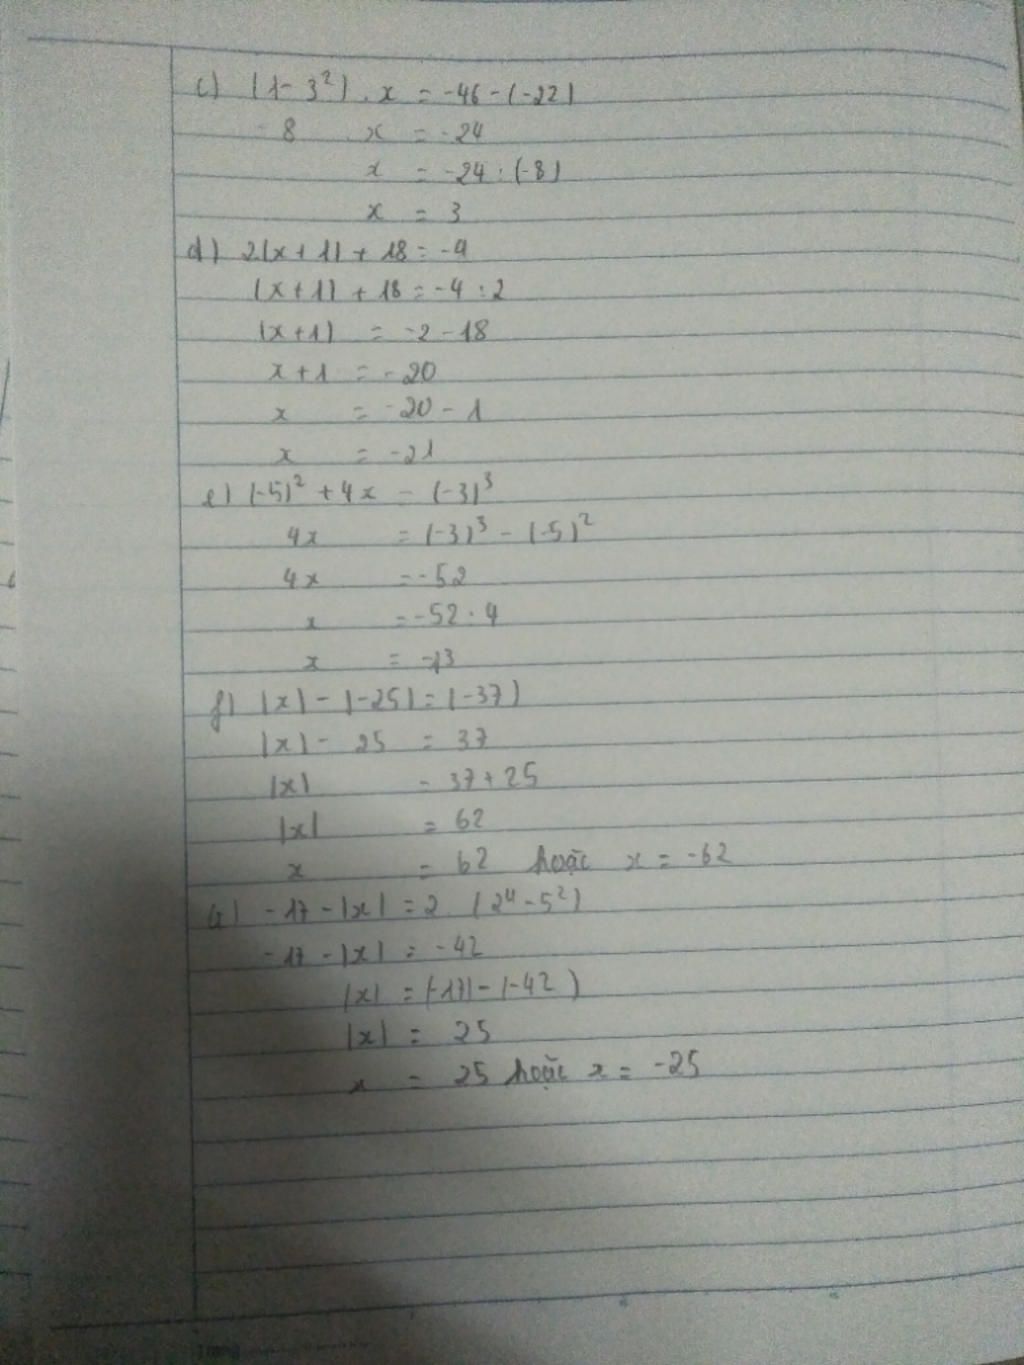 c) (1 - 3²) . x = -46 - (-22)
-8 . x = -24
x = -24 : (-8)
x = 3
d) 2(x + 1) + 18 = -4
(x + 1) + 18 = -4 : 2
(x + 1) = -2 - 18
x + 1 = -20
x = -20 - 1
x = -21
e) (-5)² + 4x = (-3)³
4x = (-3)³ - (-5)²
4x = -52
x = -52 : 4
x = -13
f) |x| - |-25| = |-37|
|x| - 25 = 37
|x| = 37 + 25
|x| = 62
x = 62 hoặc x = -62
g) -17 - |x| = 2 . (2⁴ - 5²)
-17 - |x| = -42
|x| = (-17) - (-42)
|x| = 25
x = 25 hoặc x = -25